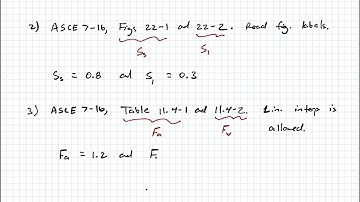 2) ASCE 7-16, Figs 22-1 and 22-2. Read fig. labels.
Ss S1
Ss = 0.8 and S1 = 0.3
3) ASCE 7-16, Table 11.4-1 and 11.4-2. Lin. interp is allowed.
Fa Fv
Fa = 1.2 and F